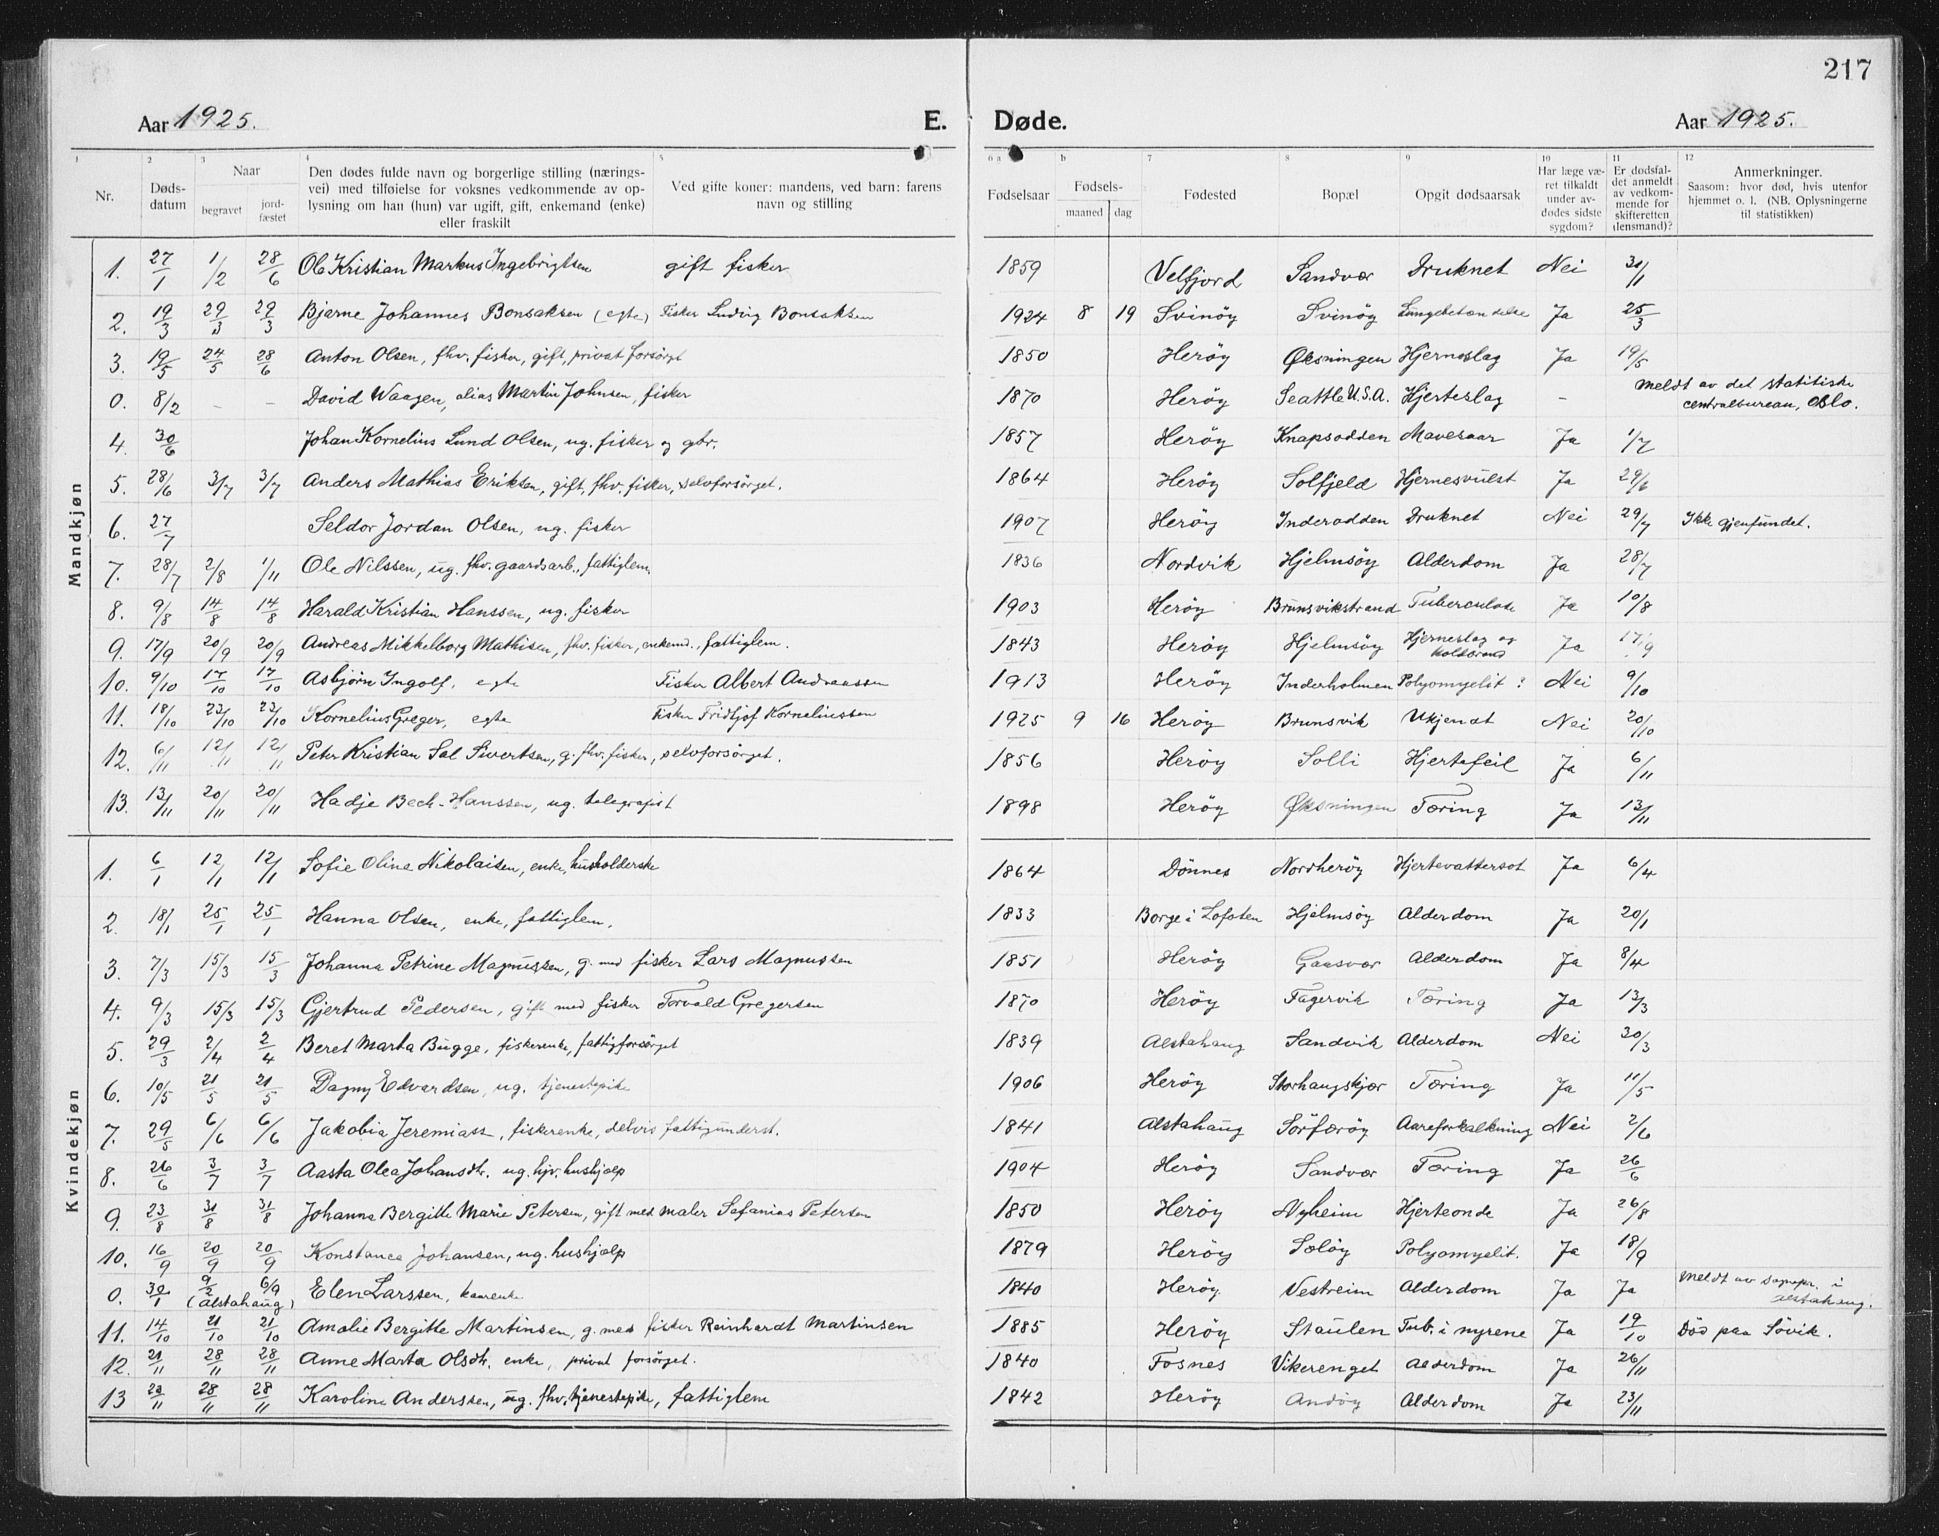 217
Aar 1925. E. Døde. Aar 1925.
1 2 3 4 5 6 a b 7 8 9 10 11 12
Nr. Døds-datum Naar begravet jord-fæstet Den dødes fulde navn og borgerlige stilling (nærings-vei) med tilføielse for voksnes vedkommende av op-lysning om han (hun) var ugift, gift, enkemand (enke) eller fraskilt Ved gifte koner: mandens, ved barn: farens navn og stilling Fødselsaar Fødsels- maaned dag Fødested Bopæl Opgit dødsaarsak Har læge væ-ret tilkaldt under av-dødes sidste sygdom? Er dødsfal-det anmeldt av vedkom-mende for skifteretten (lensmand)? Anmerkninger. Saasom: hvor død, hvis utenfor hjemmet o. l. (NB. Oplysningerne til statistikken)
Mandkjøn
1. 27/1 1/2 28/6 Ole Kristian Markus Ingebrigtsen gift fisker 1859 Velfjord Sandvær Druknet Nei 31/1
2. 19/3 29/3 29/3 Bjarne Johannes Bonsaksen (egte) Fisker Ludvig Bonsaksen 1924 8 19 Svinöy Svinöy Lungebetændelse Ja 25/3
3. 19/5 24/5 28/6 Anton Olsen, fhv. fisker, gift, privat forsörgt 1850 Heröy Øksningen Hjerneslag Ja 19/5
0. 8/2 – – David Waagen, alias Martin Johnsen, fisker 1870 Heröy Seattle U.S.A. Hjerteslag – Meldt av det statitiske centralbureau, Oslo.
4. 30/6 Johan Kornelius Lund Olsen, ug. fisker og gbr. 1857 Heröy Knapsodden Mavesaar Ja 1/7
5. 28/6 3/7 3/7 Anders Mathias Eriksen, gift, fhv. fisker, selvforsörget. 1864 Heröy Solfjeld Hjernesvulst Ja 29/6
6. 27/7 Seldor Jordan Olsen, ug. fisker 1907 Heröy Inderodden Druknet Nei 29/7 Ikke gjenfundet.
7. 28/7 2/8 1/11 Ole Nilssen, ug. fhv. gaardsarb., fattiglem. 1836 Nordvik Hjelmsöy Alderdom Ja 28/7
8. 9/8 14/8 14/8 Harald Kristian Hanssen, ug. fisker 1903 Heröy Brunsvikstrand Tuberculose Ja 10/8
9. 17/9 20/9 20/9 Andreas Mikkelborg Mathisen, fhv. fisker, enkemd., fattiglem. 1843 Heröy Hjelmsöy Hjerneslag og koldbrand Ja 17/9
10. 9/10 17/10 17/10 Asbjörn Ingolf, egte Fisker Albert Andreassen 1913 Heröy Inderholmen Polyomyelit? Nei 9/10
11. 18/10 23/10 23/10 Kornelius Greger, egte Fisker Fridtjof Korneliussen 1925 9 16 Heröy Brunsvik Ukjendt Nei 20/10
12. 6/11 12/11 12/11 Peter Kristian Sal Sivertsen, g. fhv. fisker, selvforsörget. 1856 Heröy Solli Hjertefeil Ja 6/11
13. 13/11 20/11 20/11 Hadje Bech-Hanssen, ug. telegrafist 1898 Heröy Øksningen Tæring Ja 13/11
Kvindekjøn
1. 6/1 12/1 12/1 Sofie Oline Nikolaisen, enke, husholderske 1864 Dönnes Nordheröy Hjertevattersot Ja 6/4
2. 18/1 25/1 25/1 Hanna Olsen, enke, fattiglem. 1833 Borge i Lofoten Hjelmsöy Alderdom Ja 20/1
3. 7/3 15/3 15/3 Johanna Petrine Magnussen, g. med fisker Lars Magnussen 1851 Heröy Gaasvær Alderdom Ja 8/4
4. 9/3 15/3 15/3 Gjertrud Pedersen, gift med fisker Torvald Gregersen 1870 Heröy Fagervik Tæring Ja 13/3
5. 29/3 2/4 2/4 Beret Marta Bugge, fiskerenke, fattigforsörget 1839 Alstahaug Sandvik Alderdom Nei 30/3
6. 10/5 21/5 21/5 Dagny Edvardsen, ug. tjenestepike 1906 Heröy Storhaugskjær Tæring Ja 11/5
7. 29/5 6/6 6/6 Jakobia Jeremiass, fiskerenke, delvis fattigunderst. 1841 Alstahaug Sörfæröy Aareforkalkning Nei 2/6
8. 26/6 3/7 3/7 Aasta Olea Johansdt. ug. hjv. hushjælp 1904 Heröy Sandvær Tæring Ja 26/6
9. 23/8 31/8 31/8 Johanna Bergitte Marie Petersen, gift med maler Safanias Petersen 1850 Heröy Nyheim Hjerteonde Ja 26/8
10. 16/9 20/9 20/9 Konstance Johansen, ug. hushjælp 1879 Heröy Solöy Polyomyelit. Ja 18/9
0. 30/1 9/2 6/9 (Alstahaug) Elen Larssen, kaarenke 1840 Heröy Vestreim Alderdom Ja Ja Meldt av sognepr. i Alstahaug.
11. 14/10 21/10 21/10 Amalie Bergitte Martinsen, g. med fisker Reinhardt Martinsen 1885 Heröy Staulen Tub. i nyrene Ja 19/10 Död paa Sövik.
12. 21/11 28/11 28/11 Anne Marta Olsdt. enke, privat forsörget. 1840 Fosnes Vikerenget Alderdom Ja 26/11
13 22/11 28/11 28/11 Karoline Anderssen, ug. fhv. tjenestepike, fattiglem 1842 Heröy Andöy Alderdom Ja 23/11